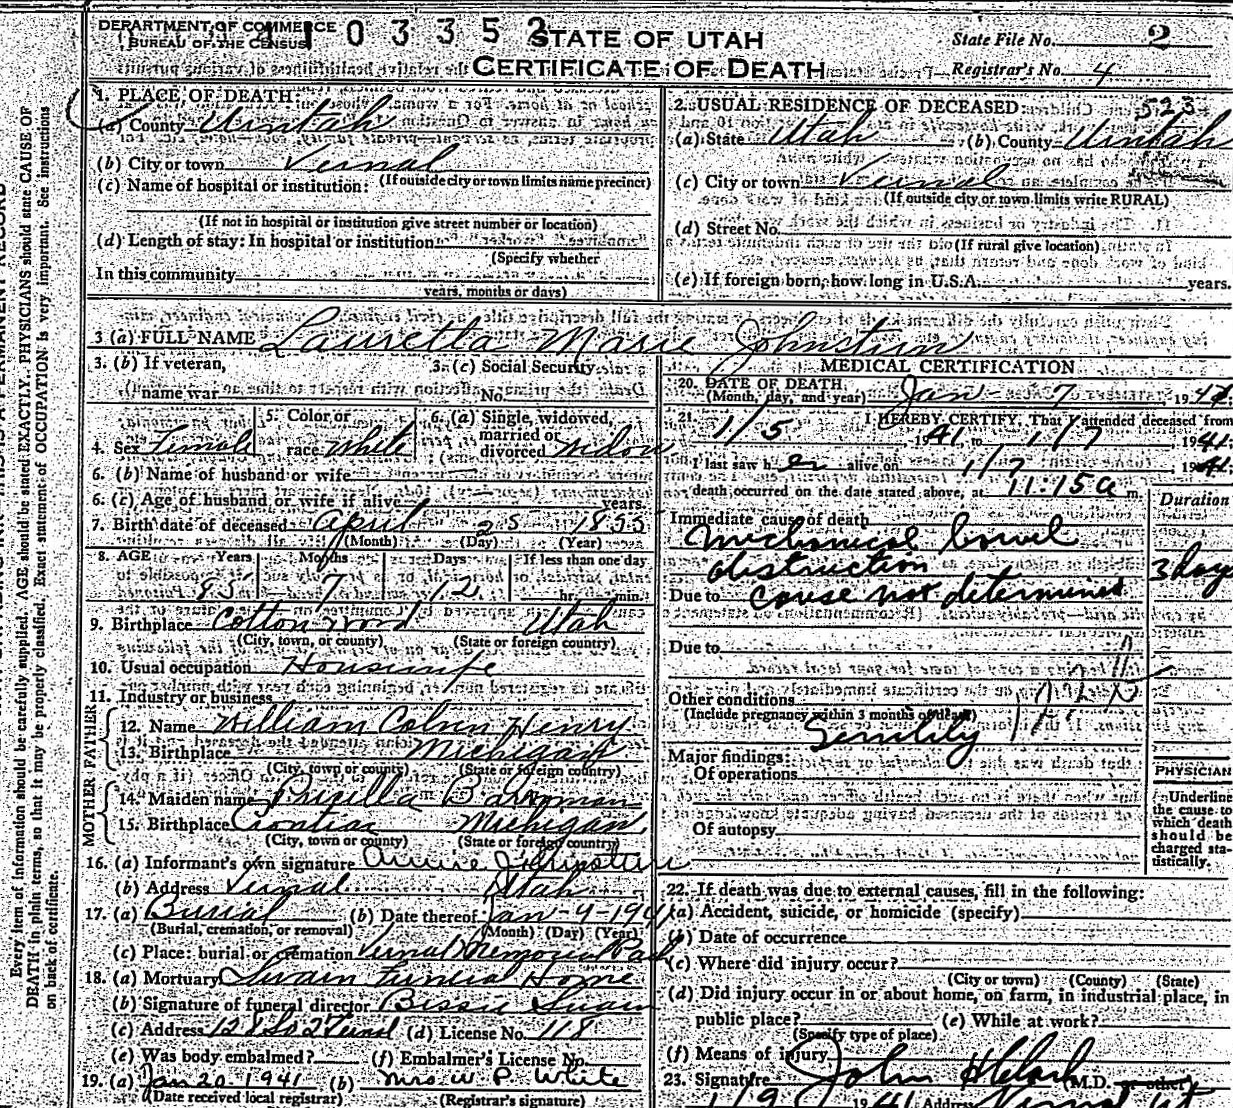 DEPARTMENT OF COMMERCE
BUREAU OF THE CENSUS
1103352
STATE OF UTAH
CERTIFICATE OF DEATH
State File No. 2
Registrar's No. 4
1. PLACE OF DEATH:
(a) County Uintah
(b) City or town Vernal
(If outside city or town limits name precinct)
(c) Name of hospital or institution:
(If not in hospital or institution give street number or location)
(d) Length of stay: In hospital or institution
(Specify whether
In this community
years, months or days)
2. USUAL RESIDENCE OF DECEASED 523
(a) State Utah (b) County Uintah
(c) City or town Vernal
(If outside city or town limits write RURAL)
(d) Street No.
(If rural give location)
(e) If foreign born, how long in U.S.A. years.
3 (a) FULL NAME Lauretta Marie Johnstun
3. (b) If veteran,
name war
3. (c) Social Security
No.
4. Sex Female
5. Color or
race White
6. (a) Single, widowed,
married or
divorced Widow
6. (b) Name of husband or wife
6. (c) Age of husband or wife if alive years.
7. Birth date of deceased April 25 1855
(Month) (Day) (Year)
8. AGE Years Months Days If less than one day
85 7 12 hr. min.
9. Birthplace Cottonwood Utah
(City, town, or county) (State or foreign country)
10. Usual occupation Housewife
11. Industry or business
FATHER
12. Name William Henry
13. Birthplace Michigan
(City, town or county) (State or foreign country)
MOTHER
14. Maiden name
15. Birthplace Michigan
(City, town or county) (State or foreign country)
16. (a) Informant's own signature Annie Johnstun
(b) Address Vernal Utah
17. (a) Burial (b) Date thereof Jan-9-1941
(Burial, cremation, or removal) (Month) (Day) (Year)
(c) Place: burial or cremation Vernal Memorial Park
18. (a) Mortuary Swain Funeral Home
(b) Signature of funeral director Bessie Swain
(c) Address 128 So 2 (d) License No. 118
(e) Was body embalmed? (f) Embalmer's License No.
19. (a) Jan 20 1941 (b) Mrs. W. P. White
(Date received local registrar) (Registrar's signature)
MEDICAL CERTIFICATION
20. DATE OF DEATH
(Month, day, and year) Jan 7 1941
21. I HEREBY CERTIFY, That I attended deceased from
1/5 1941 to 1/7 1941
I last saw her alive on 1/7 1941
death occurred on the date stated above, at 11:15 a m.
Duration
Immediate cause of death
Mechanical bowel
obstruction 3 days
Due to cause not determined
Due to
Other conditions
(Include pregnancy within 3 months of death)
Senility
Major findings:
Of operations
Of autopsy
PHYSICIAN
Underline
the cause to
which death
should be
charged sta-
tistically.
22. If death was due to external causes, fill in the following:
(a) Accident, suicide, or homicide (specify)
(b) Date of occurrence
(c) Where did injury occur?
(City or town) (County) (State)
(d) Did injury occur in or about home, on farm, in industrial place, in
public place? (e) While at work?
(Specify type of place)
(f) Means of injury
23. Signature John M.D. or other
1/9 1941 Address Vernal Ut
Every item of information should be carefully supplied. AGE should be stated EXACTLY. PHYSICIANS should state CAUSE OF
DEATH in plain terms, so that it may be properly classified. Exact statement of OCCUPATION is very important. See instructions
on back of certificate.